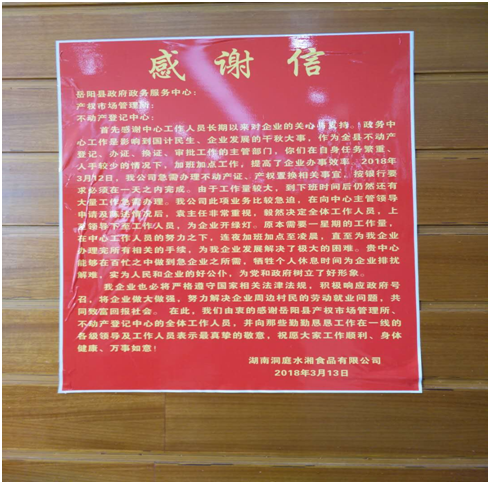 感谢信
岳阳县政府政务服务中心：
产权市场管理所：
不动产登记中心：
首先感谢中心工作人员长期以来对企业的关心与支持。政务中
心工作是影响到国计民生、企业发展的千秋大事，作为全县不动产
登记、办证、换证、审批工作的主管部门，你们在自身任务繁重、
人手较少的情况下，加班加点工作，提高了企业办事效率。2018年
3月12日，我公司急需办理不动产证、产权置换相关事宜，按银行要
求必须在一天之内完成。由于工作量较大，到下班时间后仍然还有
大量工作需要办理。我公司此项业务比较急迫，在向中心主管领导
申请及陈述情况后，袁主任非常重视，毅然决定全体工作人员，上
至领导下至工作人员，为企业开绿灯。原本需要一星期的工作量，
在中心工作人员的努力之下，连夜加班加点至凌晨，直至为我企业
办理完所有相关的手续，为我企业发展解决了极大的困难。贵中心
能够在百忙之中做到急企业之所需，牺牲个人休息时间为企业排忧
解难，实为人民和企业的好公仆，为党和政府树立了好形象。
我企业也必将严格遵守国家相关法律法规，积极响应政府号
召，将企业做大做强，努力解决企业周边村民的劳动就业问题，共
同致富回报社会。在此，我们由衷的感谢岳阳县产权市场管理所、
不动产登记中心的全体工作人员，并向那些勤勤恳恳工作在一线的
各级领导及工作人员表示最真挚的敬意，祝愿大家工作顺利、身体
健康、万事如意！
湖南洞庭水湘食品有限公司
2018年3月13日